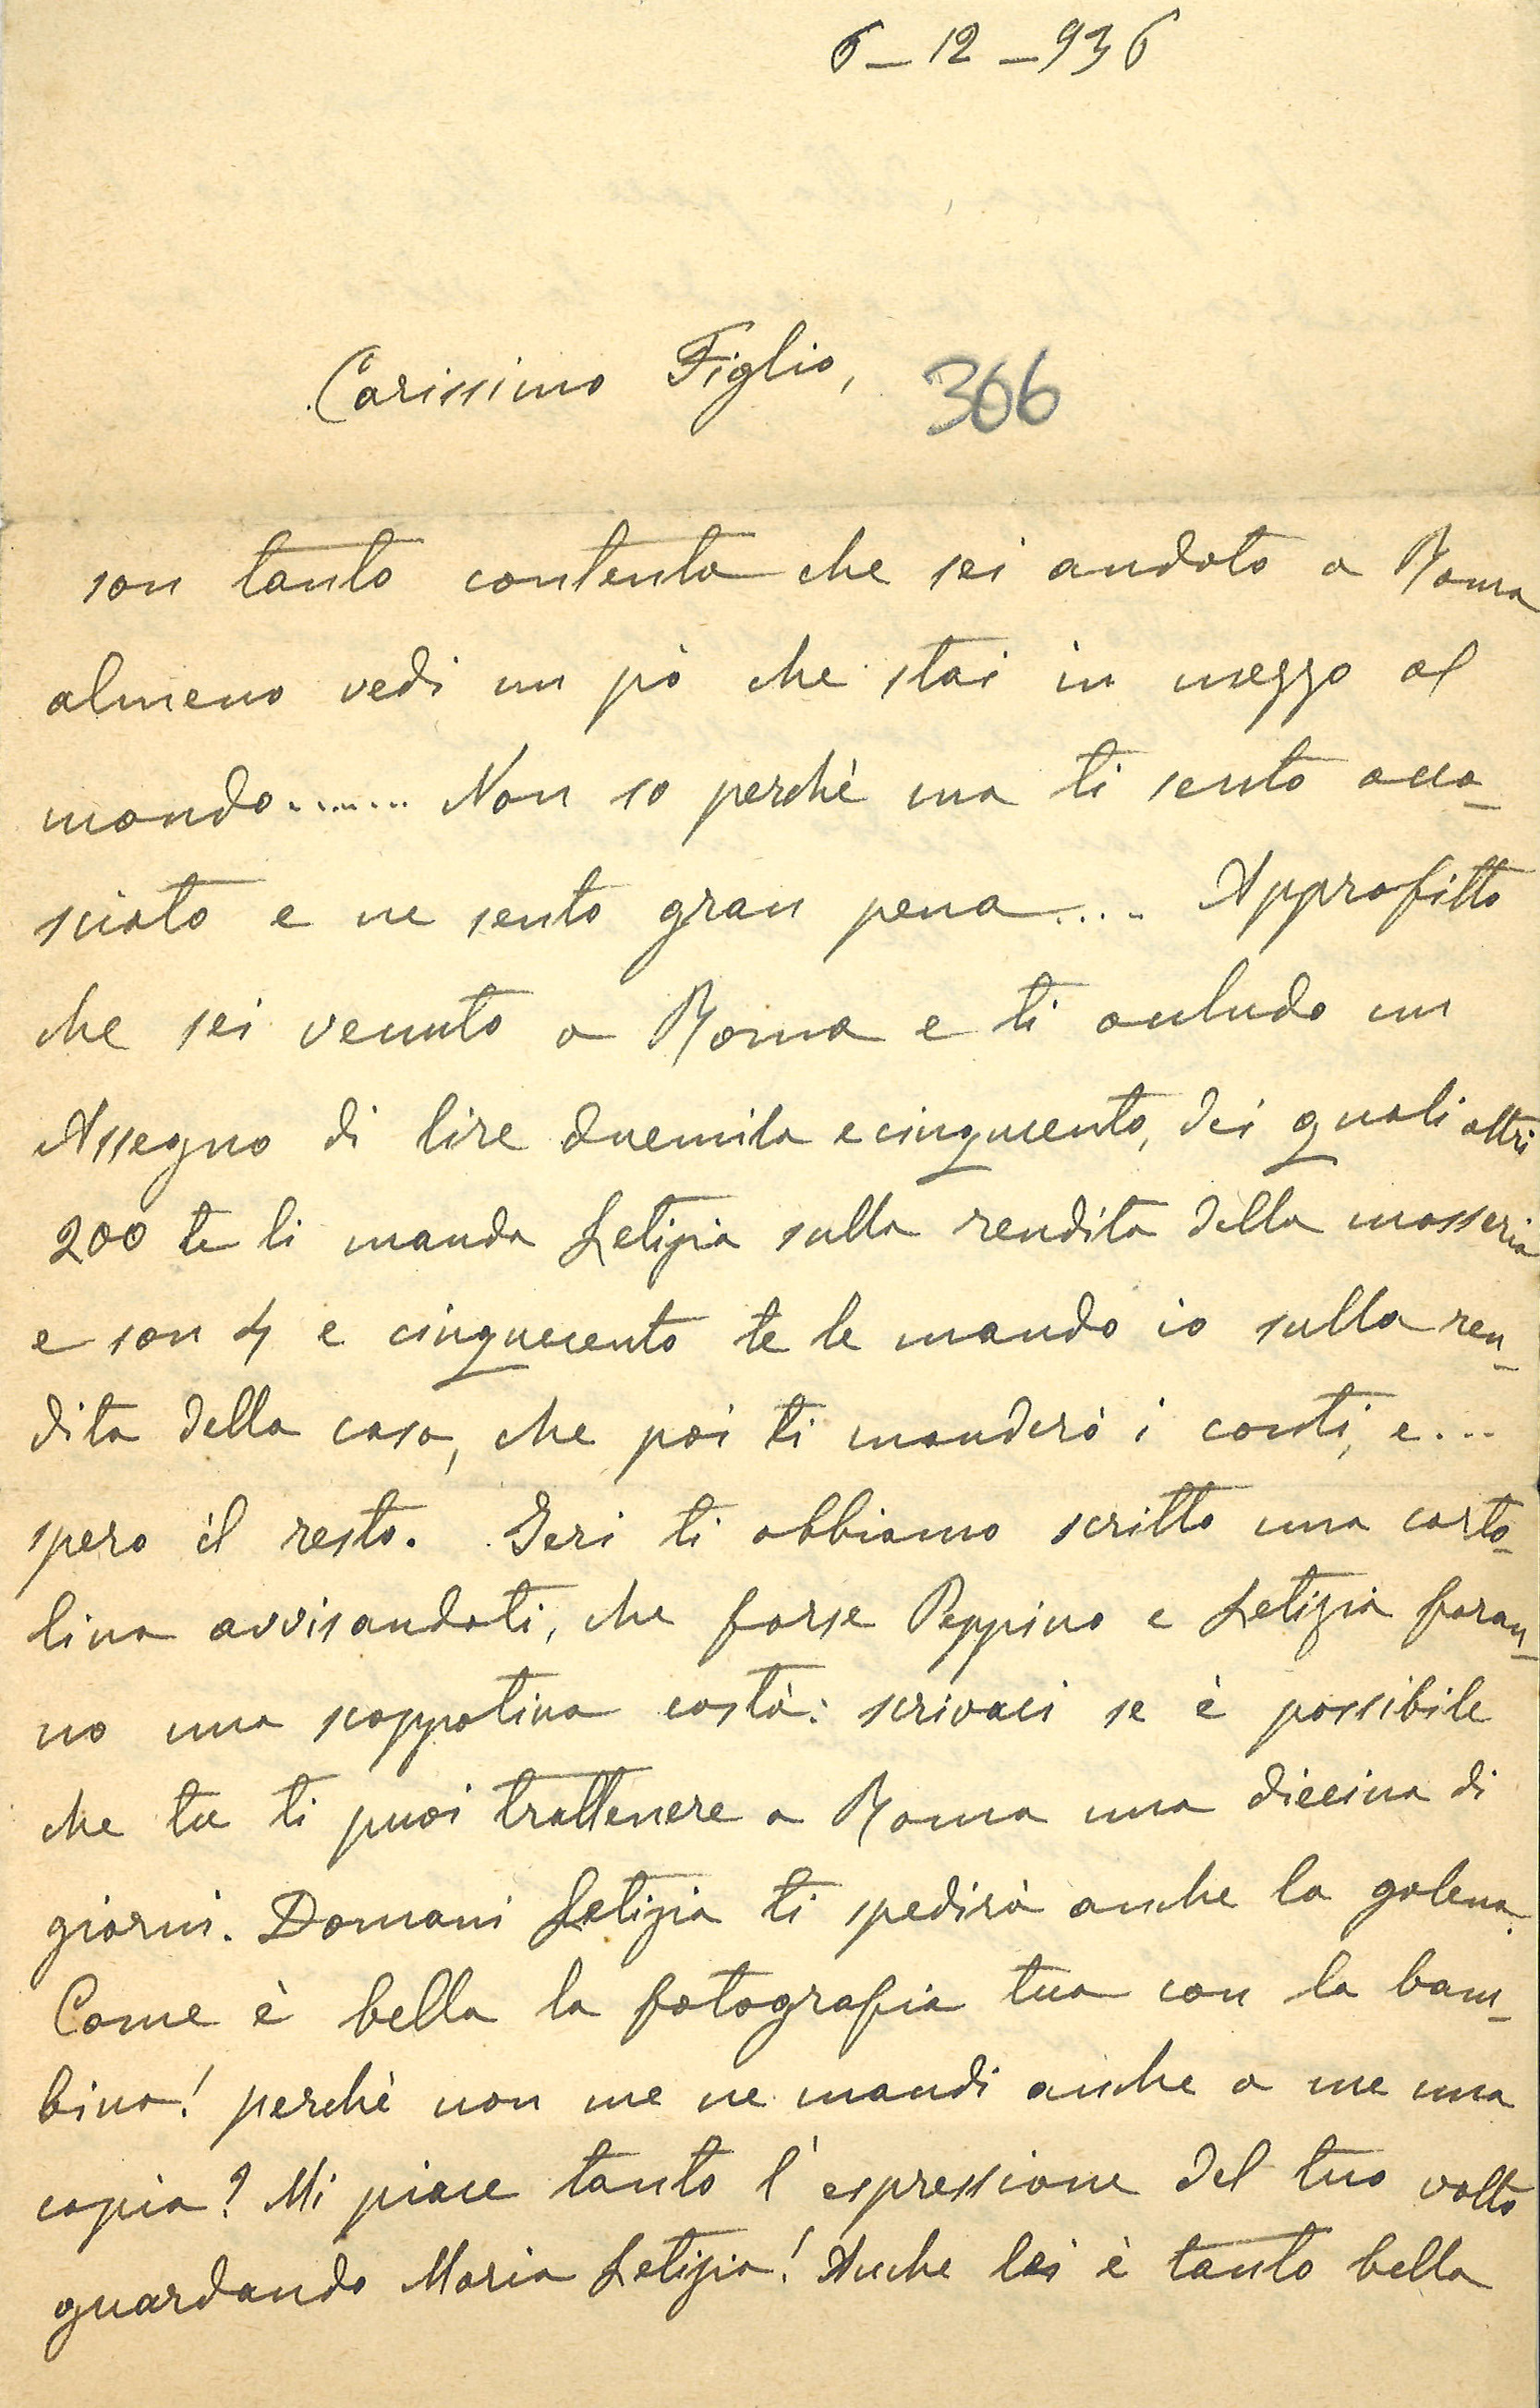 6-12-936
Carissimo Figlio, 366
son tanto contenta che sei andato a Roma
almeno vedi un pò che stai in mezzo al
mondo....... Non so perchè ma ti sento acca-
sciato e ne sento gran pena.... Approfitto
che sei venuto a Roma e ti acludo un
Assegno di lire duemila e cinqucento, dei quali altri
200 te li manda Letizia sulla rendita della masseria
e son 4 e cinquecento te le mando io sulla ren-
dita della casa, che poi ti manderò i conti, e...
spero il resto. Ieri ti abbiamo scritto una carto-
lina avvisandoti, che forse Peppino e Letizia faran-
no una scappatina costà: scrivaci se è possibile
che tu ti puoi trattenere a Roma una diecina di
giorni. Domani Letizia ti spedirà anche la galena.
Come è bella la fotografia tua con la bam-
bina! perchè non me ne mandi anche a me una
copia? Mi piace tanto l'espressione del tuo volto
guardando Maria Letizia! Anche lei è tanto bella